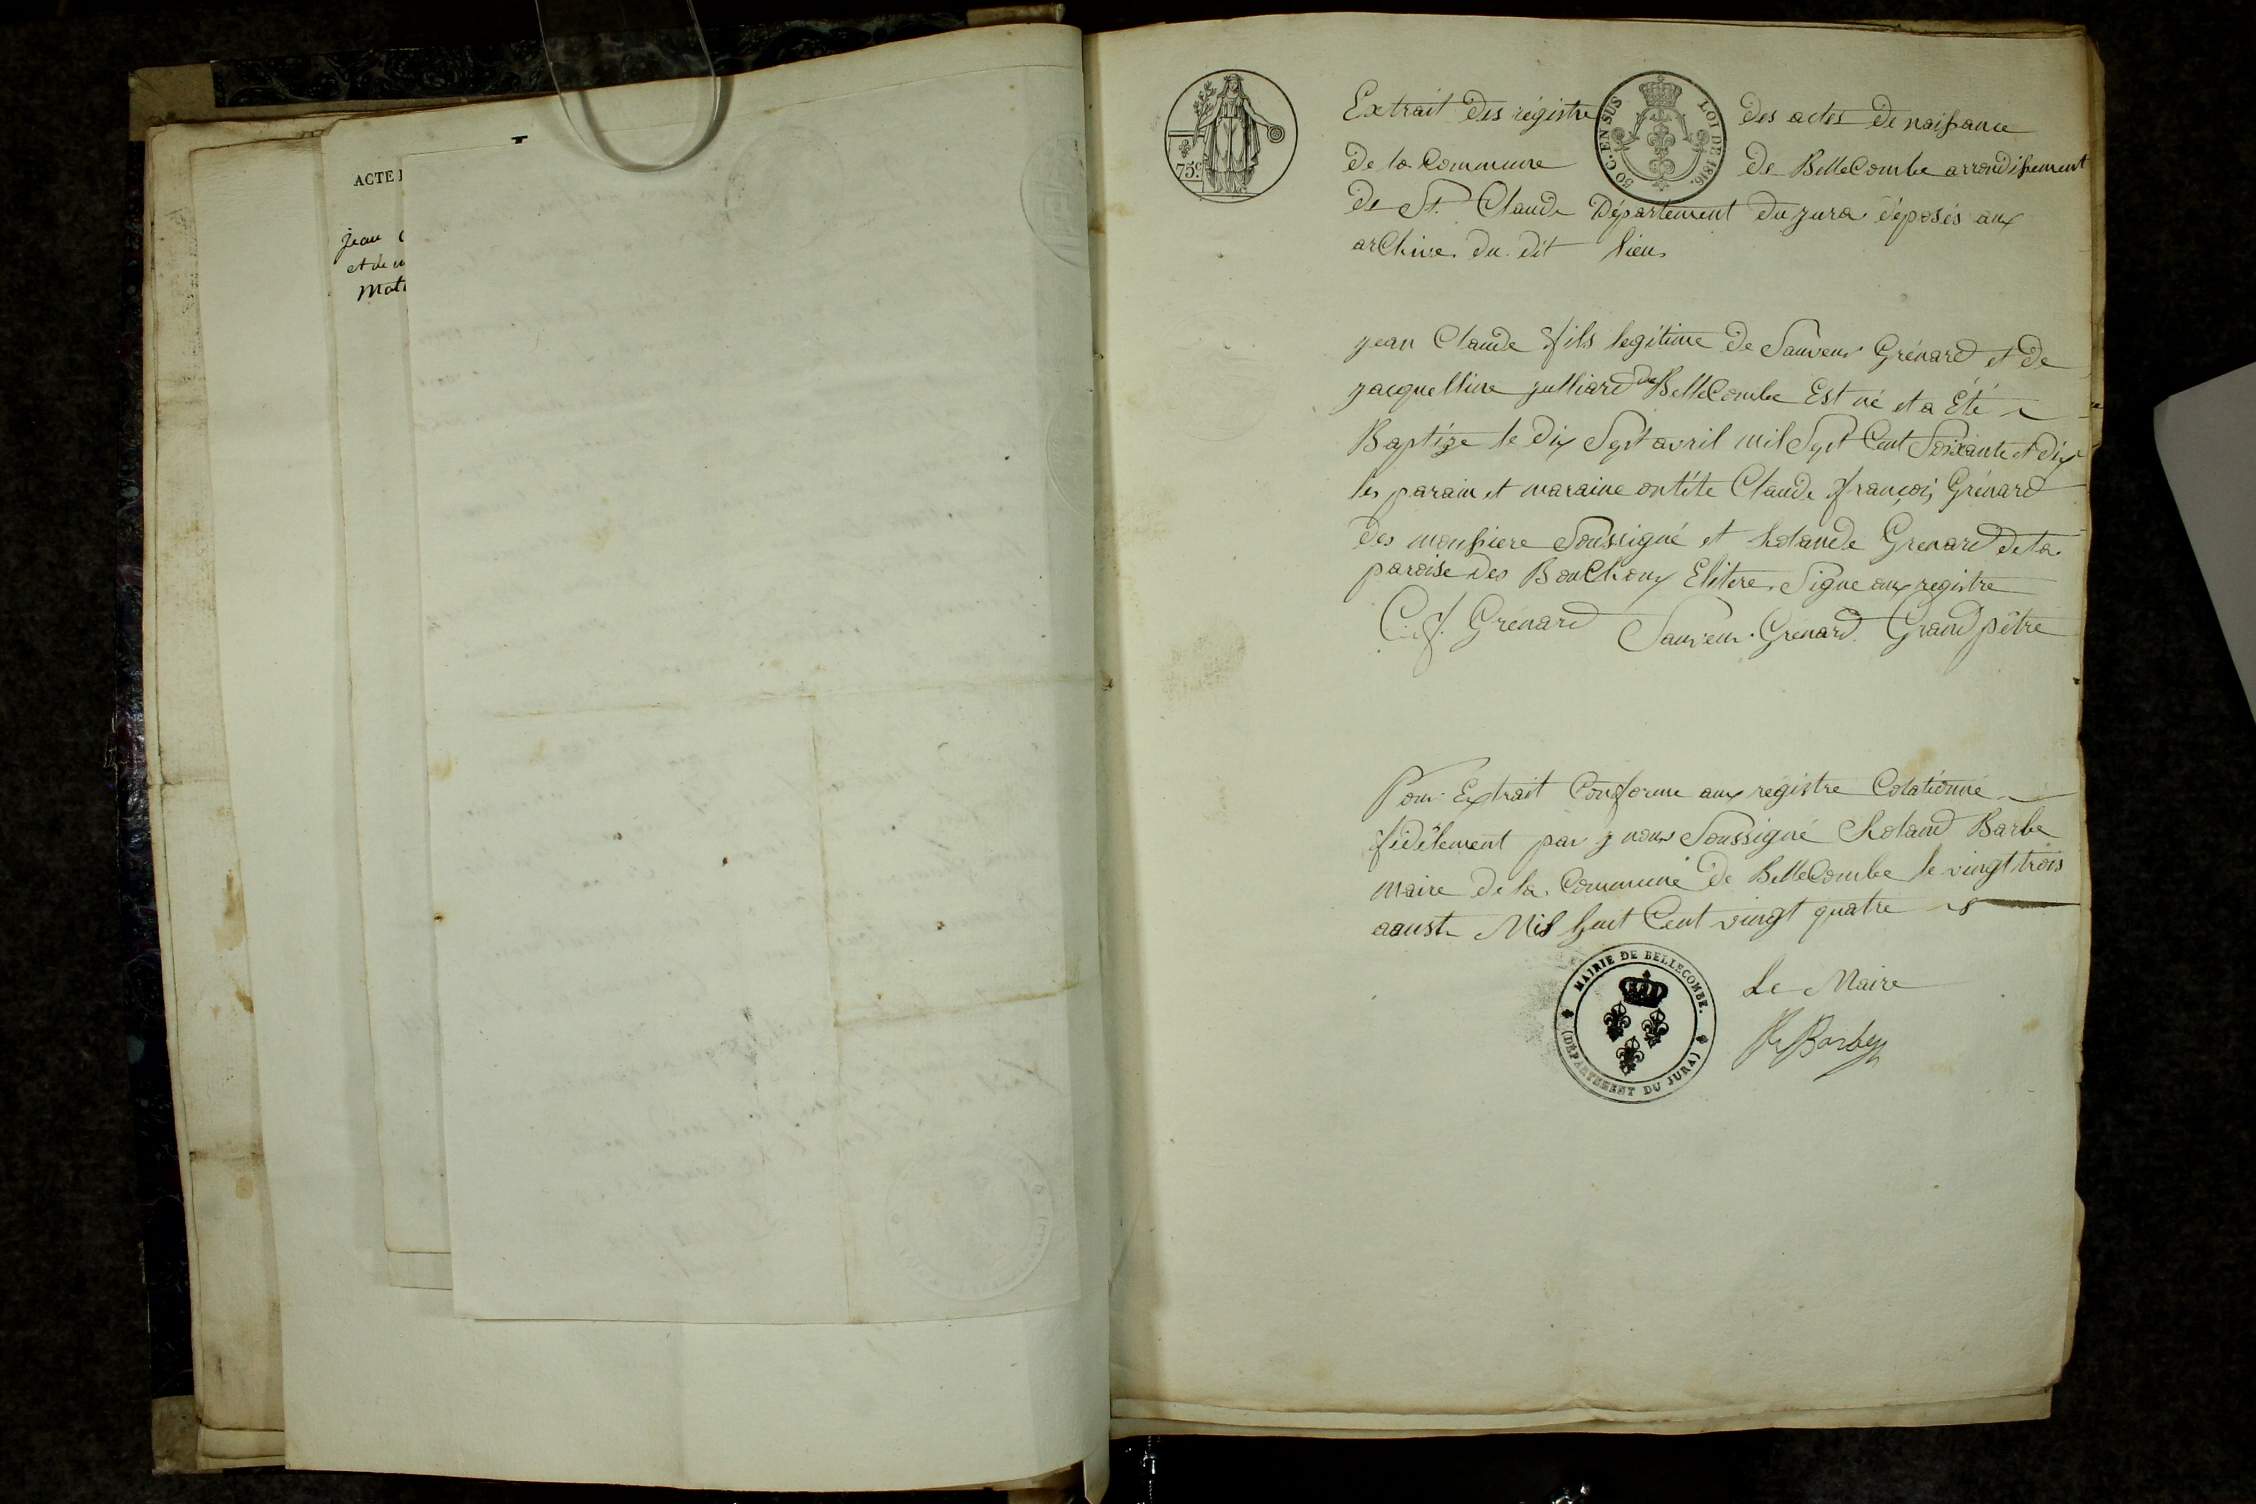 ACTE
jean
et de
mat
75c
50 C. EN SUS
LOI DE 1816.
Extrait des régistre des actes de naissance
de la Commune de BelleCombe arrondissement
de St. Claude Département du jura déposés aux
arChive du dit lieu
jean Claude fils legitime de Sauveur Grénard et de
jacquelline julliard de BelleCombe Est né et a Été
Baptize le dix Sept avril mil Sept Cent Soixante et dix
les parain et maraine ont été Claude françois Grénard
des moussiere Soussigné et Rolande Grenard de la
paroise des BouChoux Elitere Signe aux registre
C. f. Grenard Sauveur Grenard Grandpêtre
Pour Extrait Conforme aux régistre Colationné
fidélement par nous Soussigné Roland Barbe
maire de la Commune de BelleCombe le vingt trois
aoust Mil huit Cent vingt quatre
MAIRIE DE BELLECOMBE.
(DÉPARTEMENT DU JURA)
Le Maire
R Barbe